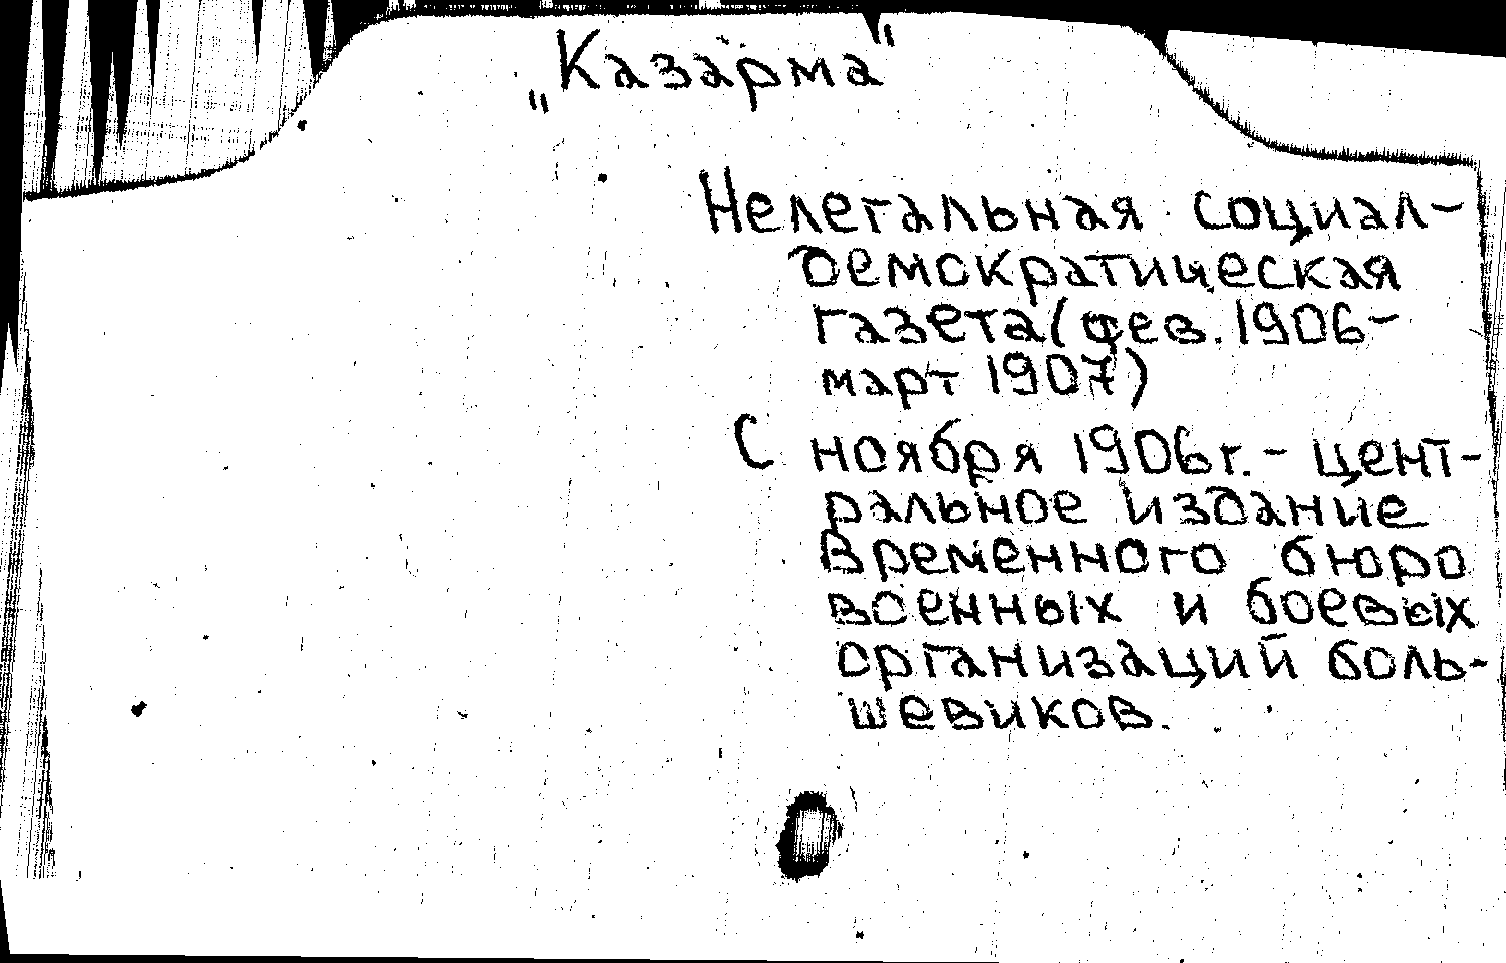 „Казарма"
Нелегальная социал-
демократическая
газета (фев. 1906-
март 1907)
С ноября 1906 г. - цент-
ральное издание
Временного бюро
военных и боевых
организаций боль-
шевиков.